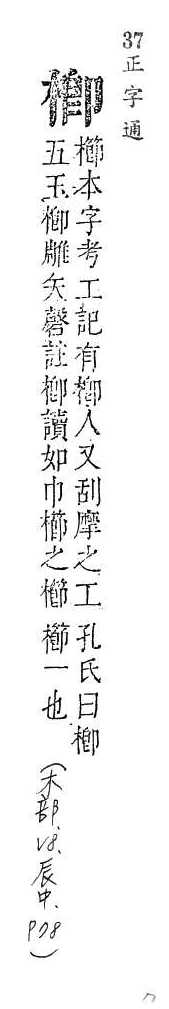 37正字通
楖
櫛本字考工記有楖人又刮摩之工
五玉楖雕矢磬註楖讀如巾櫛之櫛
孔氏曰楖
櫛一也
(木部、V8、辰中、P78)